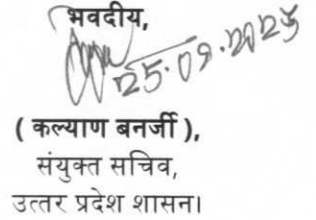 भवदीय,
25.09.2025
( कल्याण बनर्जी ),
संयुक्त सचिव,
उत्तर प्रदेश शासन।